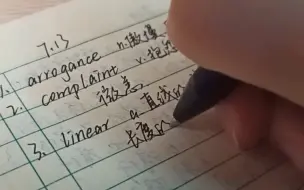 7.13
1. arrogance n.傲慢
2. complaint v.抱怨
微恙
3. linear a.直线的
长度的